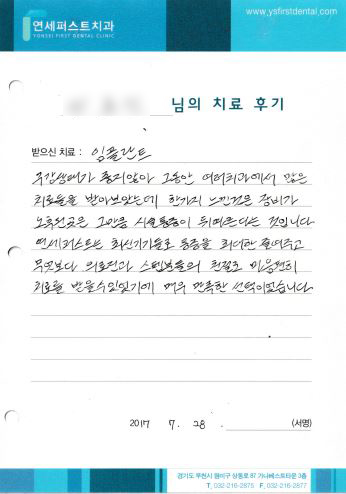 연세퍼스트치과
YONSEI FIRST DENTAL CLINIC
www.ysfirstdental.com
님의 치료 후기
받으신 치료 : 임플란트
구강상태가 좋지않아 그동안 여러치과에서 많은
치료들을 받아보았는데 한가지 느낀점은 장비가
노후된곳은 그만큼 시술통증이 뒤따른다는 것입니다
연세퍼스트는 최신기기들로 통증을 최대한 줄여주고
무엇보다 의료진과 스텝분들의 친절로 마음편히
치료를 받을수있었기에 매우 만족한 선택이었습니다
2017 7. 28 . (서명)
경기도 부천시 원미구 상동로 87 가나베스트타운 3층
T. 032-216-2875 F. 032-216-2877